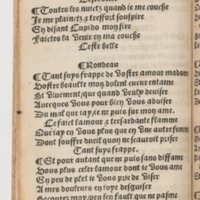 Toutes les nuictz quand ie me couche
Je me plainetz et tresfort souspire
En disant Cupido monsire
Faictes la venir en ma couche
Ceste belle
Rondeau
Tant suys frappe de vostre amour madame
Vostre beaulte mon dolent cueur entame
Si viuement, que quant veulx deuiser
Auecques vous pour bien vous aduiser
Du mal que iay ne puis sur mon ame.
Ce faict lamour et tresardante flamme
Que iay en vous plus que en vne autre femme
Dont souffre dueil quon ne scauroit priser
Tant suys frappe.
Et pour autant que ne puis sans diffame
Vous plus celer lamour dont ie vous ame
En peu de plet ie vous pris de vser
A mes douleurs ey ioye desguiser
Secoures moy, ou sen fault que ne pasme